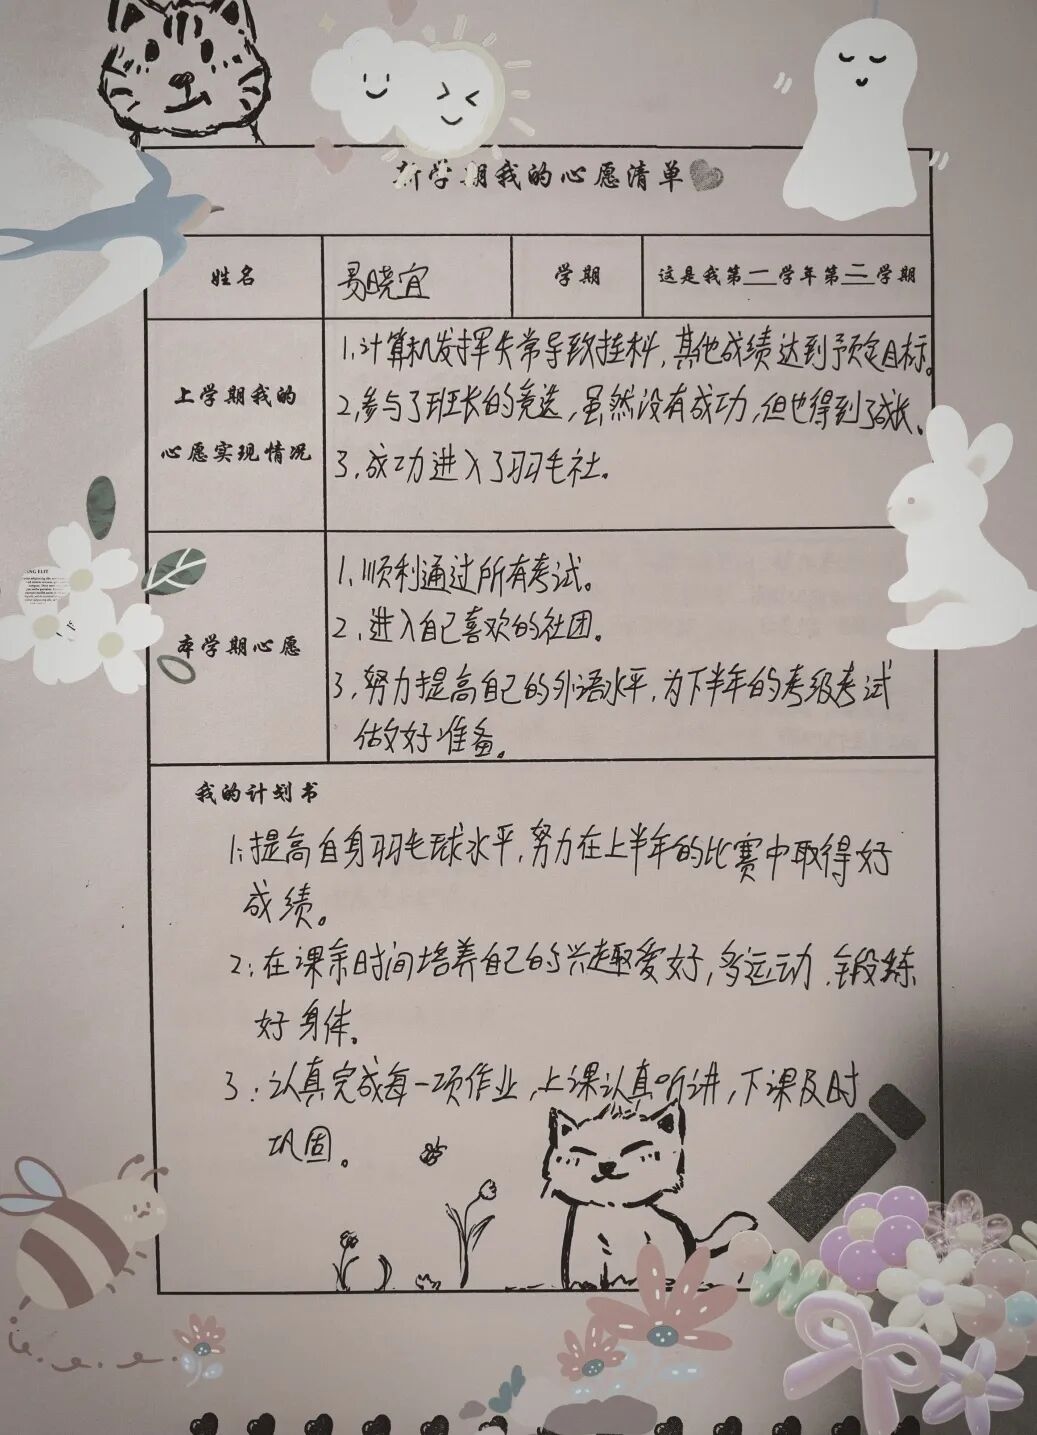 新学期我的心愿清单
姓名 易晓宜 学期 这是我第一学年第二学期
上学期我的
心愿实现情况
1.计算机发挥失常导致挂科,其他成绩达到预定目标。
2.参与了班长的竞选,虽然没有成功,但也得到了成长。
3.成功进入了羽毛社。
本学期心愿
1.顺利通过所有考试。
2.进入自己喜欢的社团。
3.努力提高自己的外语水平,为下半年的考级考试
做好准备。
我的计划书
1:提高自身羽毛球水平,努力在上半年的比赛中取得好
成绩。
2:在课余时间培养自己的兴趣爱好,多运动.锻炼
好身体。
3:认真完成每一项作业,上课认真听讲,下课及时
巩固。